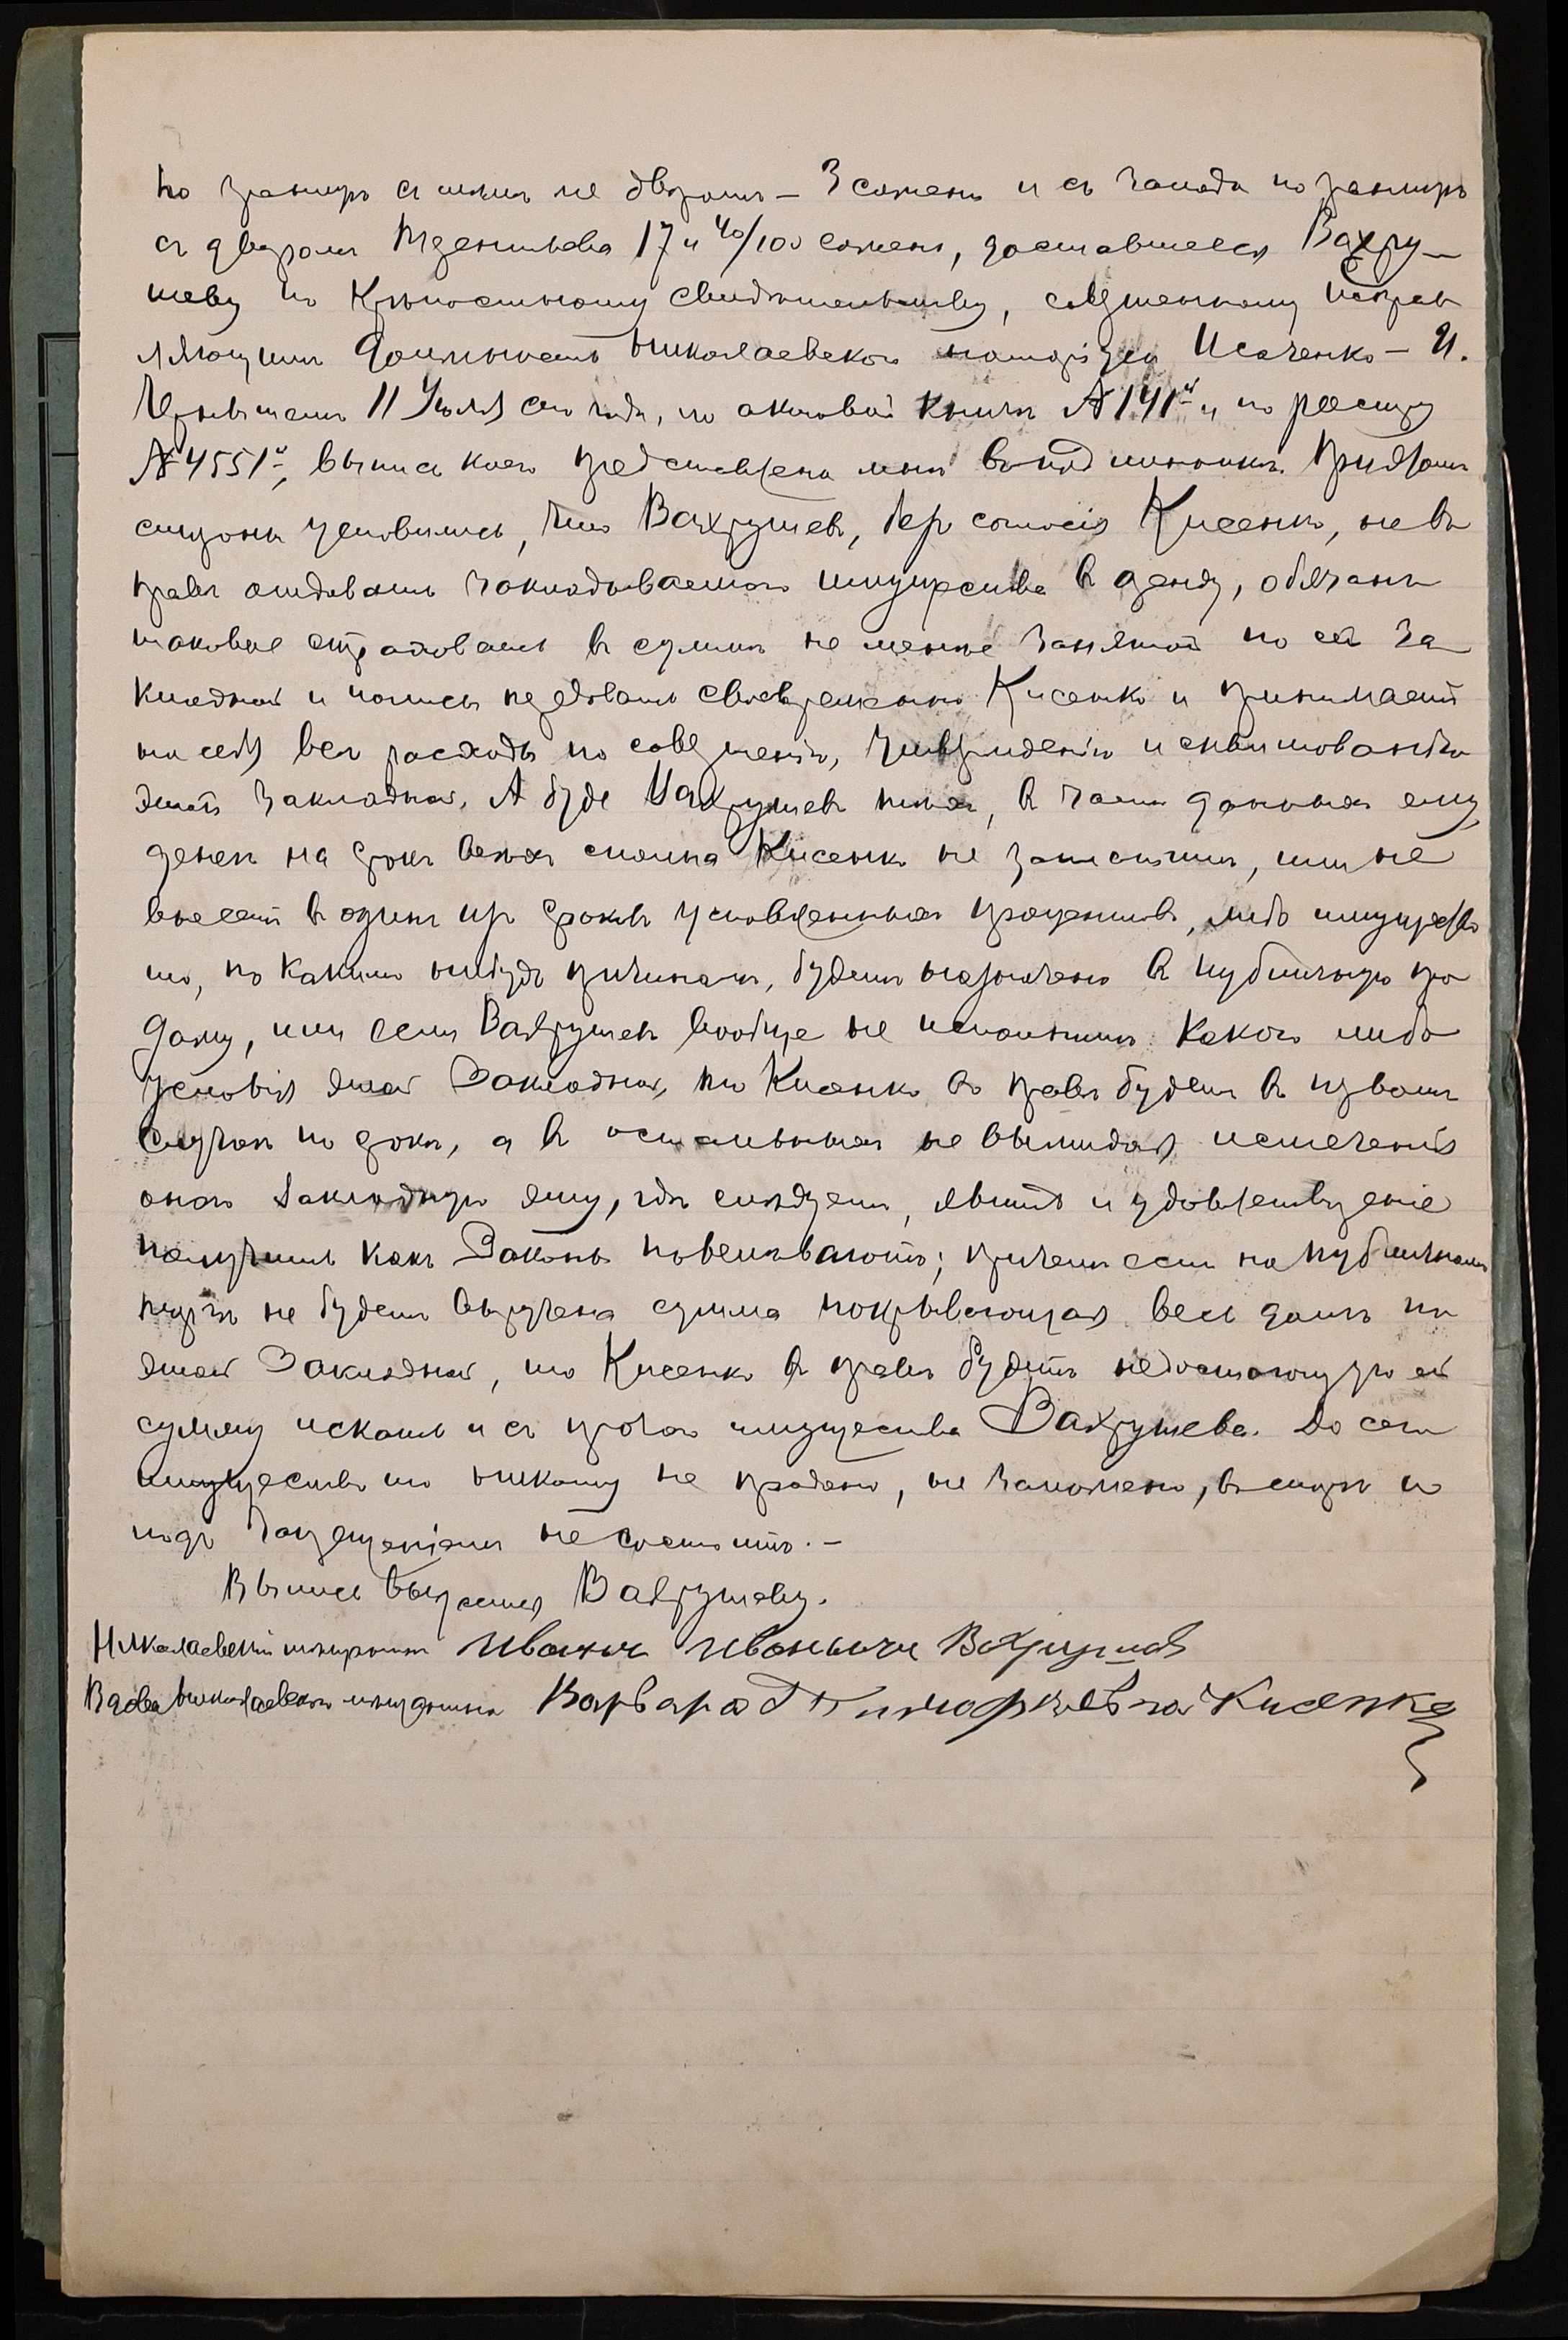 по границѣ съ тѣмъ же дворомъ — 3 сажени и съ запада по границѣ
съ дворомъ 17 и 40/100 сажень, доставшееся Вахру-
шеву по Крѣпостному свидѣтельству, совершенному исправ
ляющимъ должность Николаевскаго нотаріуса Исаченко — И.
11 Іюля сего года, по актовой книгѣ № 141й и по реестру
№ 4551й, выпись коего представлена мнѣ въ подлинникѣ. При этомъ
стороны условились, что Вахрушевъ, безъ согласія Кисенко, не въ
правѣ отдавать закладываемаго имущества въ аренду, обязанъ
таковое страховать въ суммѣ не менѣе занятой по сей за
кладной и полисы передавать своевременно Кисенко и принимаетъ
на себя всѣ расходы по совершенію, утвержденію и
этой закладной. А буде Вахрушевъ тѣхъ, въ заемъ данныхъ ему
денегъ на срокъ всѣхъ сполна Кисенко не заплатитъ, или не
внесетъ въ одинъ изъ сроковъ условленныхъ процентовъ, либо имущество
то, по какимъ нибудь причинамъ, будетъ назначено въ публичную про
дажу, или если Вахрушевъ вообще не исполнитъ какого либо
условія этой Закладной, то Кисенко въ правѣ будетъ въ первомъ
случаѣ по срокѣ, а въ остальныхъ не выжидая истеченія
онаго Закладную эту, гдѣ слѣдуетъ, явить и удовлетвореніе
получить какъ Законы повелѣваютъ; причемъ если на публичномъ
торгѣ не будетъ выручена сумма покрывающая весь долгъ по
этой Закладной, то Кисенко въ правѣ будетъ недостающую ей
сумму искать и съ прочаго имущества Вахрушева. До сего
имущество то никому не продано, не заложено, въ спорѣ и
подъ запрещеніемъ не состоитъ. —
Выпись выдается Вахрушеву.
Николаевскій мѣщанинъ Иванъ Ивановичъ Вахрушевъ
Вдова Николаевскаго мѣщанина Варвара Тимофѣевна Кисенко